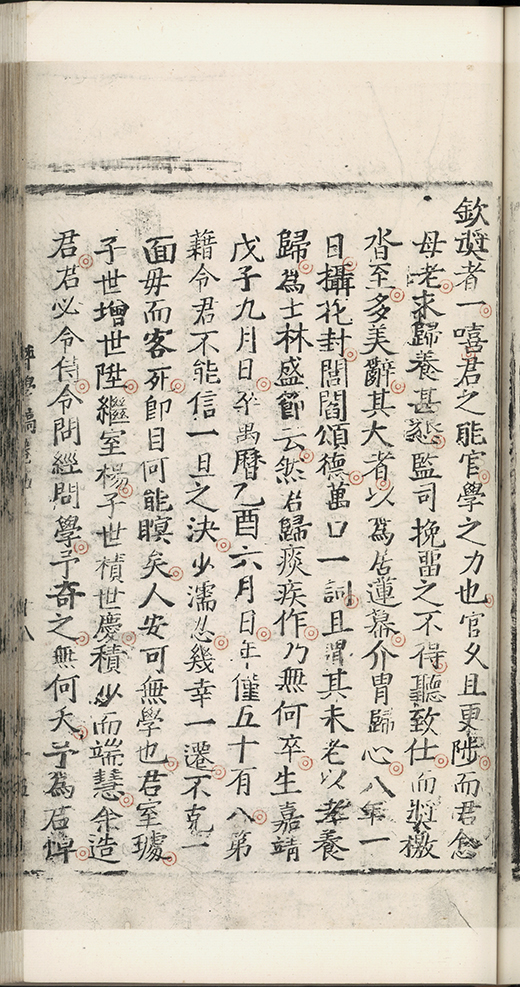 欽奬者一嘻君之能官學之力也官久且更陟而君念
母老求歸養甚懇監司挽畱之不得聽致仕而奬檄
沓至多美辭其大者以爲居蓮幕介胄歸心八年一
日攝花封閭閻頌德萬口一詞且謂其未老以孝養
歸爲士林盛節云然君歸痰疾作乃無何卒生嘉靖
戊子九月日卒萬曆乙酉六月日年僅五十有八第
藉令君不能信一旦之決少濡忍幾幸一遷不克一
面母而客死卽目何能瞑矣人安可無學也君室璩
子世增世陞繼室楊子世積世慶積少而端慧余造
君君必令侍令問經問學予奇之無何夭予爲君悼